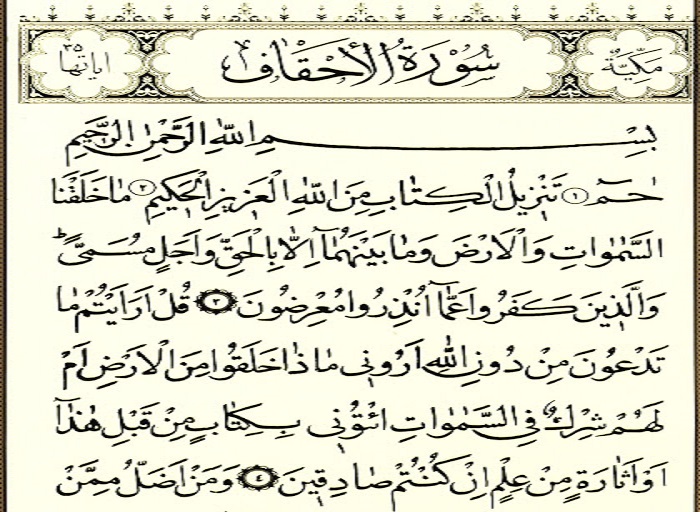 مَكِّيَّةٌ سُورَةُ الْأَحْقَافِ اٰيَاتُهَا ٣٥
بِسْمِ اللّٰهِ الرَّحْمٰنِ الرَّحٖيمِ
حٰمٓ ﴿١﴾ تَنْزٖيلُ الْكِتَابِ مِنَ اللّٰهِ الْعَزٖيزِ الْحَكٖيمِ ﴿٢﴾ مَا خَلَقْنَا
السَّمٰوَاتِ وَالْاَرْضَ وَمَا بَيْنَهُمَٓا اِلَّا بِالْحَقِّ وَاَجَلٍ مُسَمًّىؕ
وَالَّذٖينَ كَفَرُوا عَمَّٓا اُنْذِرُوا مُعْرِضُونَ ﴿٣﴾ قُلْ اَرَاَيْتُمْ مَا
تَدْعُونَ مِنْ دُونِ اللّٰهِ اَرُونٖى مَاذَا خَلَقُوا مِنَ الْاَرْضِ اَمْ
لَهُمْ شِرْكٌ فِى السَّمٰوَاتِ ائْتُونٖى بِكِتَابٍ مِنْ قَبْلِ هٰذَٓا
اَوْ اَثَارَةٍ مِنْ عِلْمٍ اِنْ كُنْتُمْ صَادِقٖينَ ﴿٤﴾ وَمَنْ اَضَلُّ مِمَّنْ